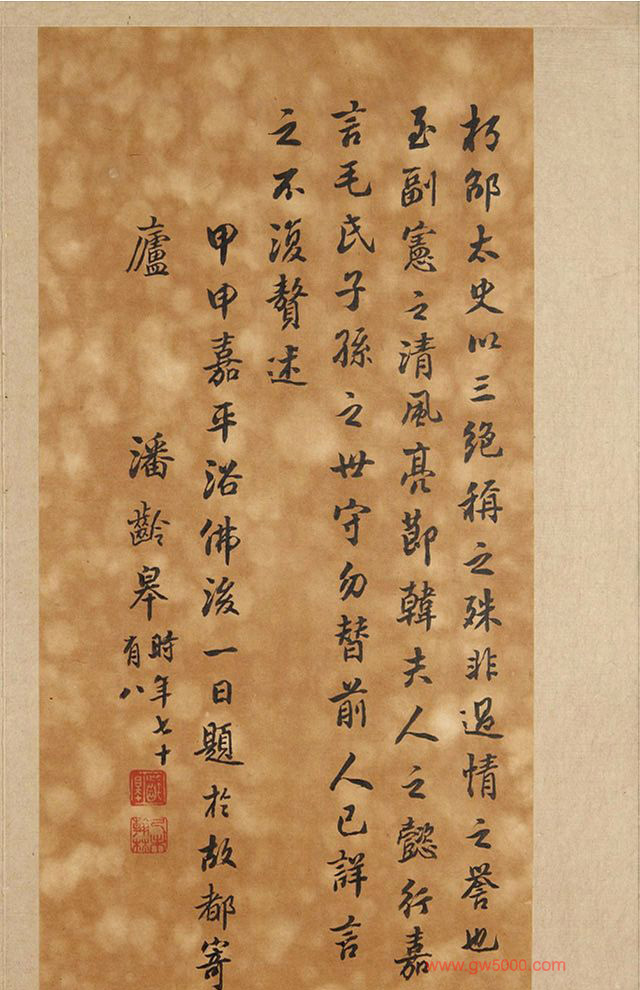 朽邵太史以三絕稱之殊非過情之譽也
至副憲之清風亮節韓夫人之懿行嘉
言毛氏子孫之世守勿替前人已詳言
之不復贅述
甲申嘉平浴佛後一日題於故都寄
廬 潘齡皋 時年七十
有八
www.gw5000.com